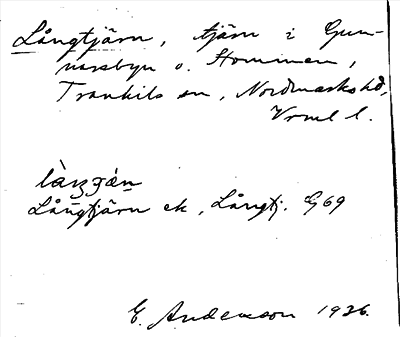 Långtjärn, tjärn i Gun-
narsbyn o. Hommen,
Trankils sn, Nordmarks hd,
Vrml l.
Långtjärn ek, Långtj. G69
E. Andersson 1926.